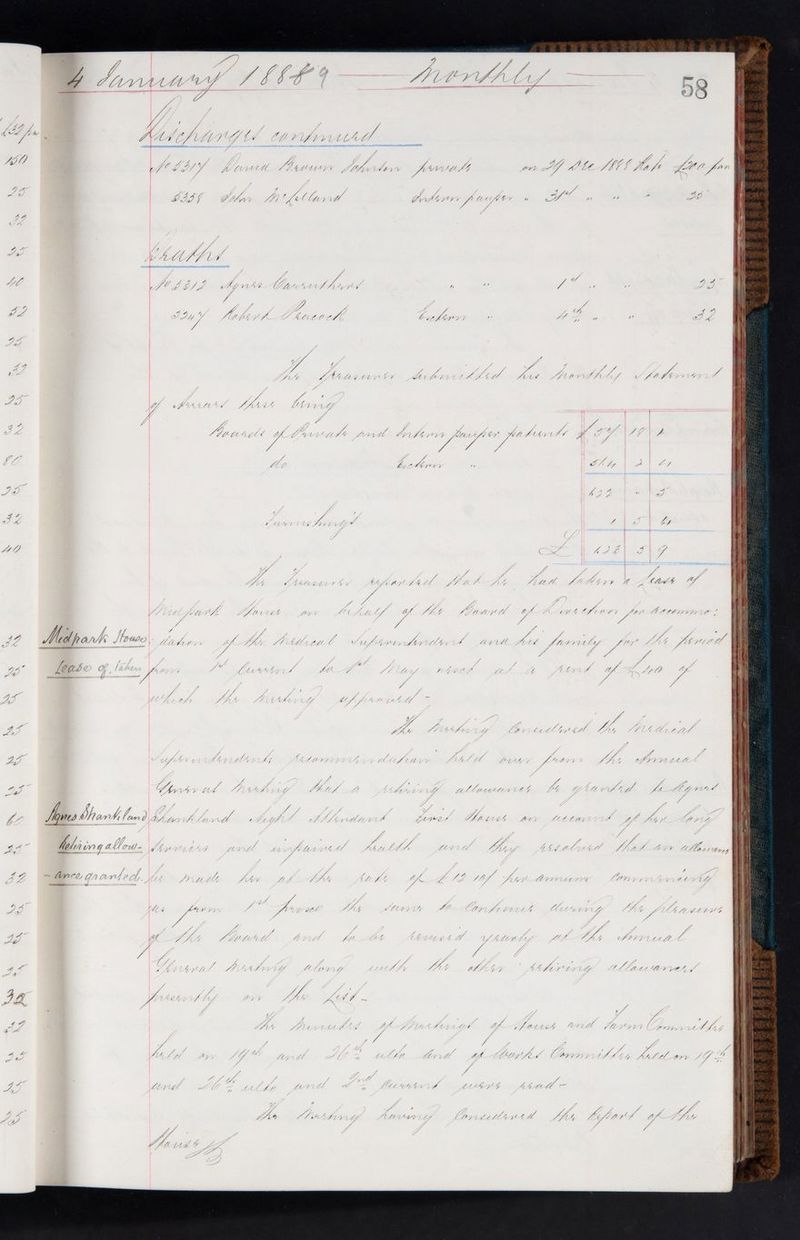 4 January 1889 Monthly
58
Discharges continued
No 5317 David Brown Johnston private on 29 Dec 1888 Rate £200 per
5358 John McLelland Intern pauper " 31st " " " 25
Deaths
No 5312 Agnes Carruthers " " 1st " " 25
3347 Robert Peacock Extern " 4th " " 32
The Treasurer submitted his Monthly Statement
of Arrears these being
Boards of Private and Intern pauper patients £ 18
do Extern " 2
622 - 5
Furnishings 1 5 4
£ 623 5 9
The Treasurer reported that he had taken a Lease of
Midpark House on behalf of the Board of Direction for accommo:
Midpark House
:dation of the Medical Superintendent and his family for the period
Lease of, taken
from 1st Current to 1st May next at a rent of of
which the Meeting approved -
The Meeting Considered the Medical
Superintendents recommendation held over from the Annual
General Meeting that a retiring allowance be granted to Agnes
Agnes Shankland
Shankland Night Attendant First House on account of her long
Retiring allow-
Services and impaired health and they resolved that an allowance
-ance granted.
be made her at the rate of £ 12 10/ per annum commencing
as from 1st proxo the same to Continue during the pleasure
of the Board and to be revised yearly at the Annual
General Meeting along with the other retiring allowances
presently on the List -
The Minutes of Meetings of House and Farm Committee
held on 19th and 26th ulto and of Works Committee held on 19th
and 26th ulto and 2nd Current were read -
The Meeting having Considered the Report of the
House
£32 per
150
25
32
25
40
32
25
32
25
32
80
25
32
40
32
25
25
25
25
25
60
25
32
25
25
25
32
32
25
25
25